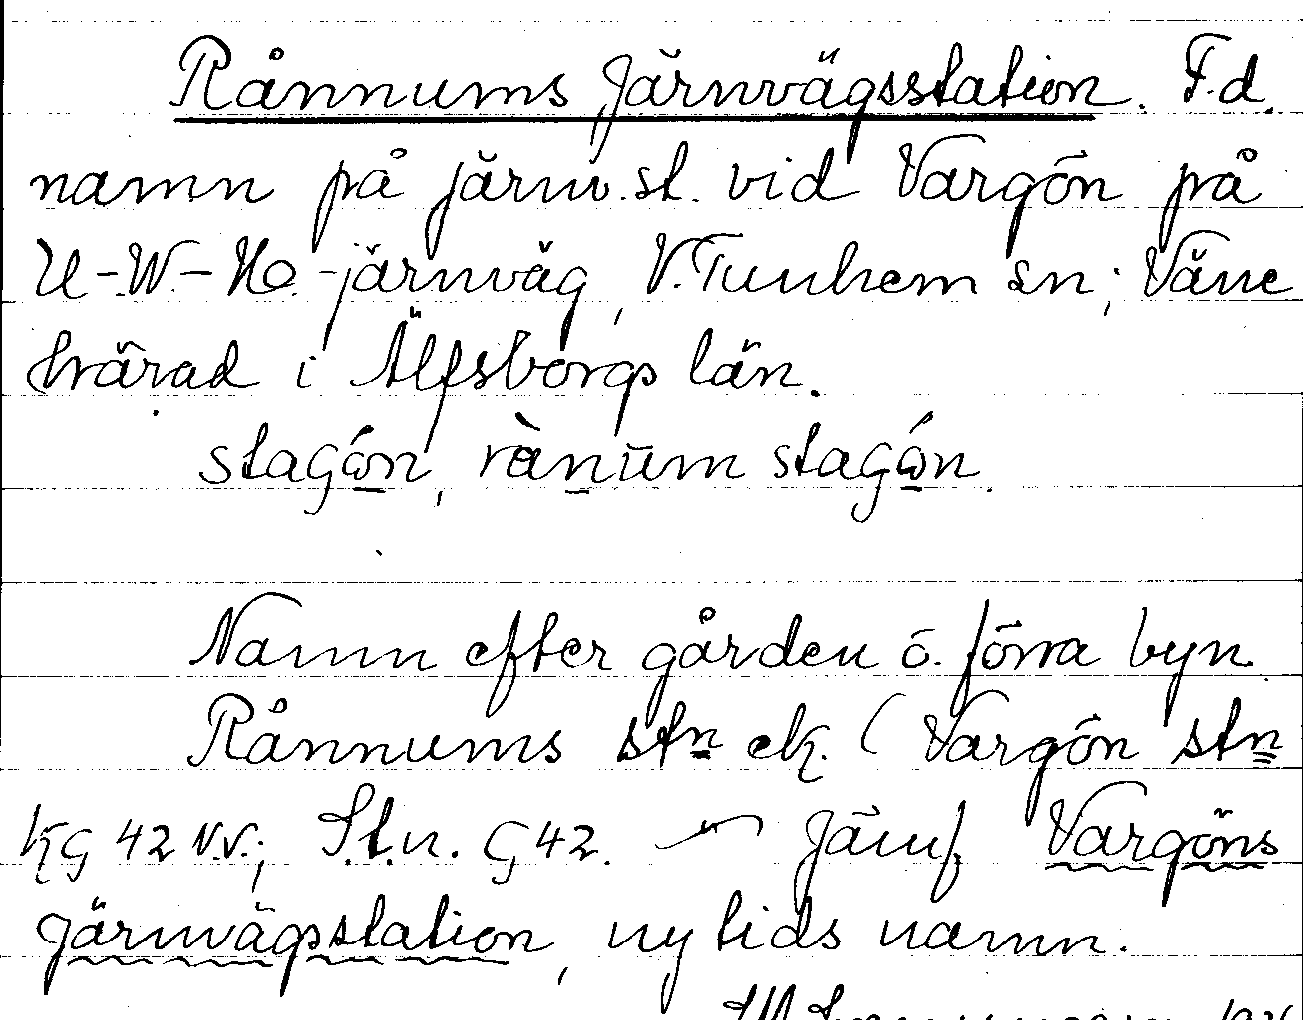 Rånnums Järnvägsstation. F.d.
namn på järnv.st. vid Vargön på
U-W-He-järnväg, V.Tunhem sn; Väne
härad i Älfsborgs län.
stagǿn, rànūm stagǿn.
Namn efter gården o. förra byn
Rånnums stn ek. (Vargön stn
KG 42 N.V.; St.n. G42. Jämf Vargöns
Järnvägsstation, nytids namn.